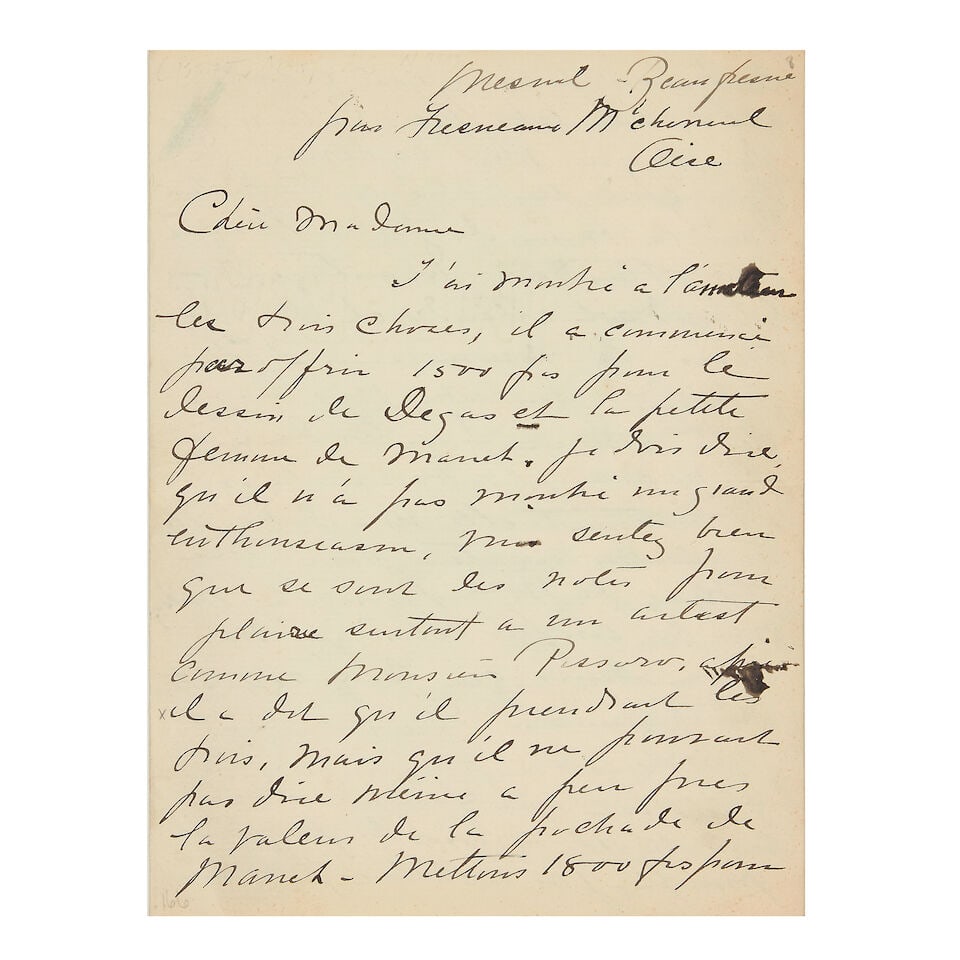 Mesnil-Beaufresne
par Fresneaux Mt chevreul
Oise
Chère Madame
J'ai montré a l'amateur
les trois choses, il a commencé
par offrir 1500 frs pour le
dessin de Degas et la petite
femme de Manet. Je dois dire
qu'il n'a pas montré un grand
enthousiasm, sentez bien
que se sont des notes pour
plaire surtout a un artist
comme Monsieur Pissaro.
x il a dit qu'il prendrait les
trois, mais qu'il ne pouvait
pas dire même a peu pres
la valeur de la pochade de
Manet - Mettons 1800 frs pour
166